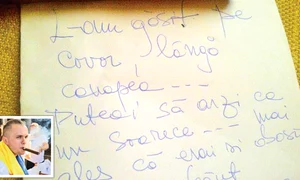 L-am găsit pe
covor lângă
canapea ---
Puteai să arzi ca
un șoarece --- mai
ales că erai și obosit